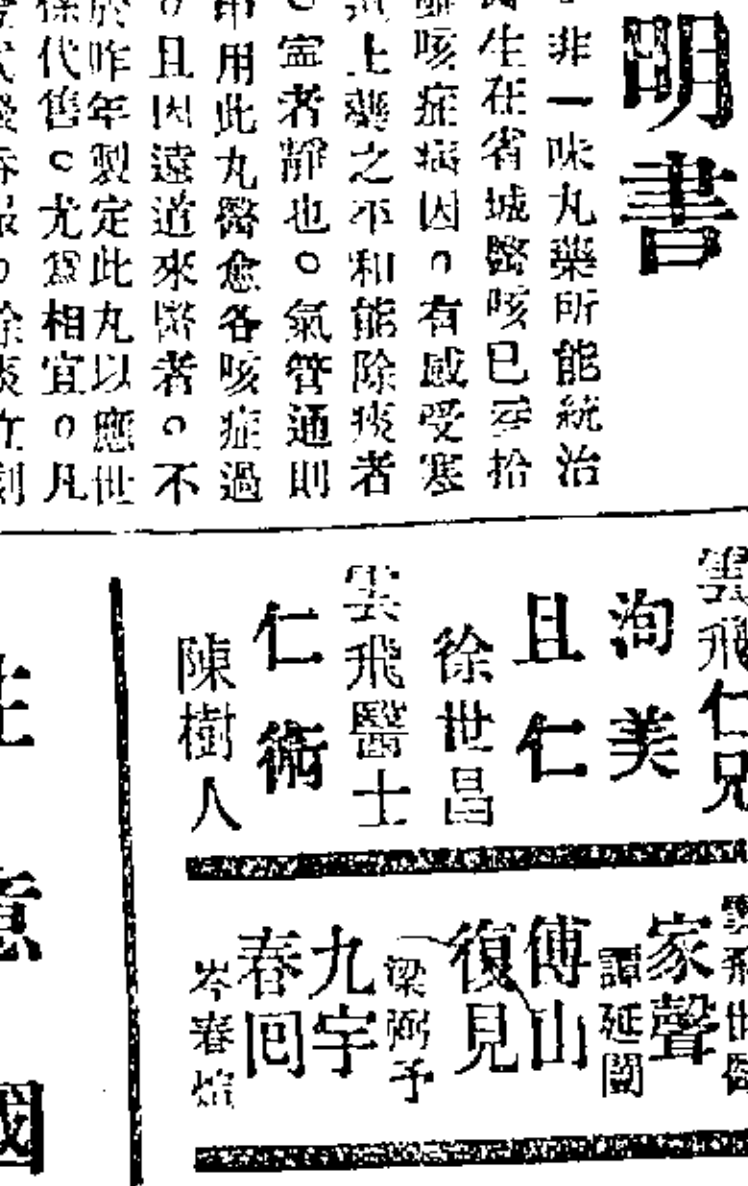 明書
非一味丸藥所能統治
生在省城醫咳已至拾
咳症病因。有感受寒
上藥之不和能除痰者
。寍者靜也。氣管通則
用此丸醫愈各咳症過
。且因遠道來醫者。不
於昨年製定此丸以應世
代售。尤為相宜。凡
雲飛仁兄
洵美
且仁
徐世昌
雲飛醫士
仁術
陳樹人
雲飛世
家聲
譚延闓
傅山
復見
梁弼予
九宇
春回
岑春煊
意
國